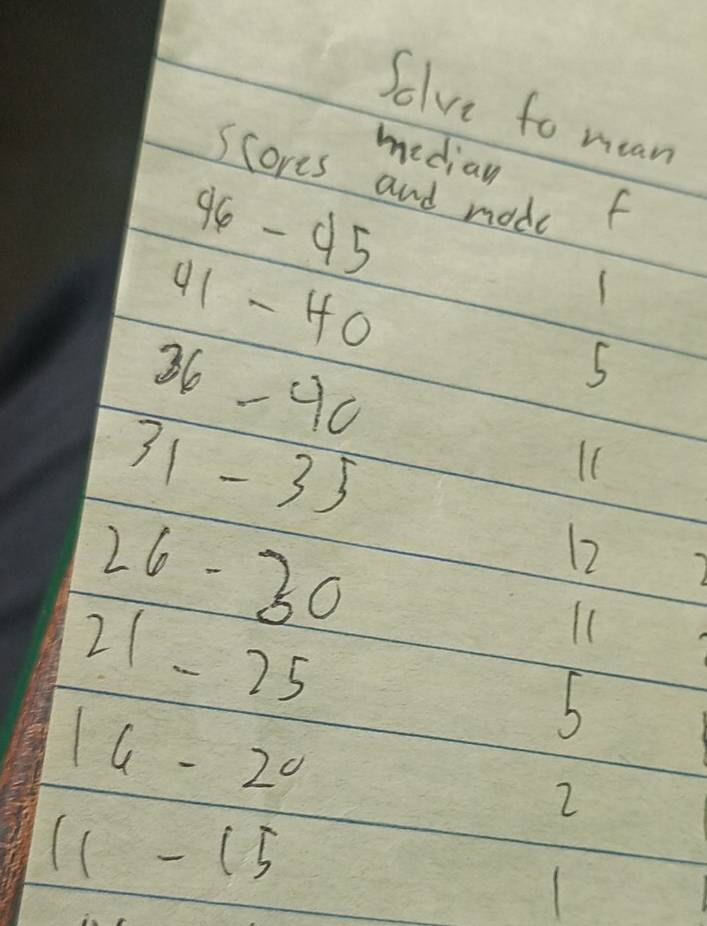 Solve to mean
median
and mode
Scores f
46 - 45 1
41 - 40 5
36 - 40 11
31 - 35 12
26 - 30 11
21 - 25 5
16 - 20 2
11 - 15 1